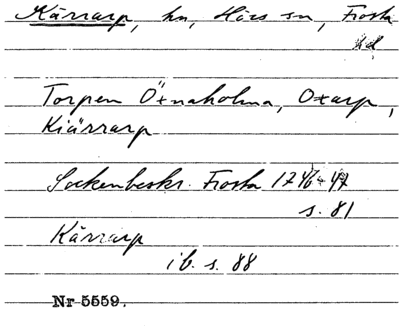 Kärrarp, hn, Hörs sn, Frosta
hd
Torpen Öxnaholma, Oxarp,
Kiärrarp
Sockenbeskr. Frosta 1746-47
s. 81
Kärrarp
ib. s. 88
Nr 5559.